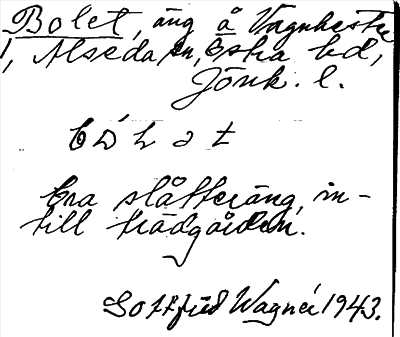 Bolet, äng å Vagnhester
, Alseda sn, Östra hd,
Jönk. l.
Bra slåtteräng, in-
till trädgården.
Gottfrid Wagnér 1943.